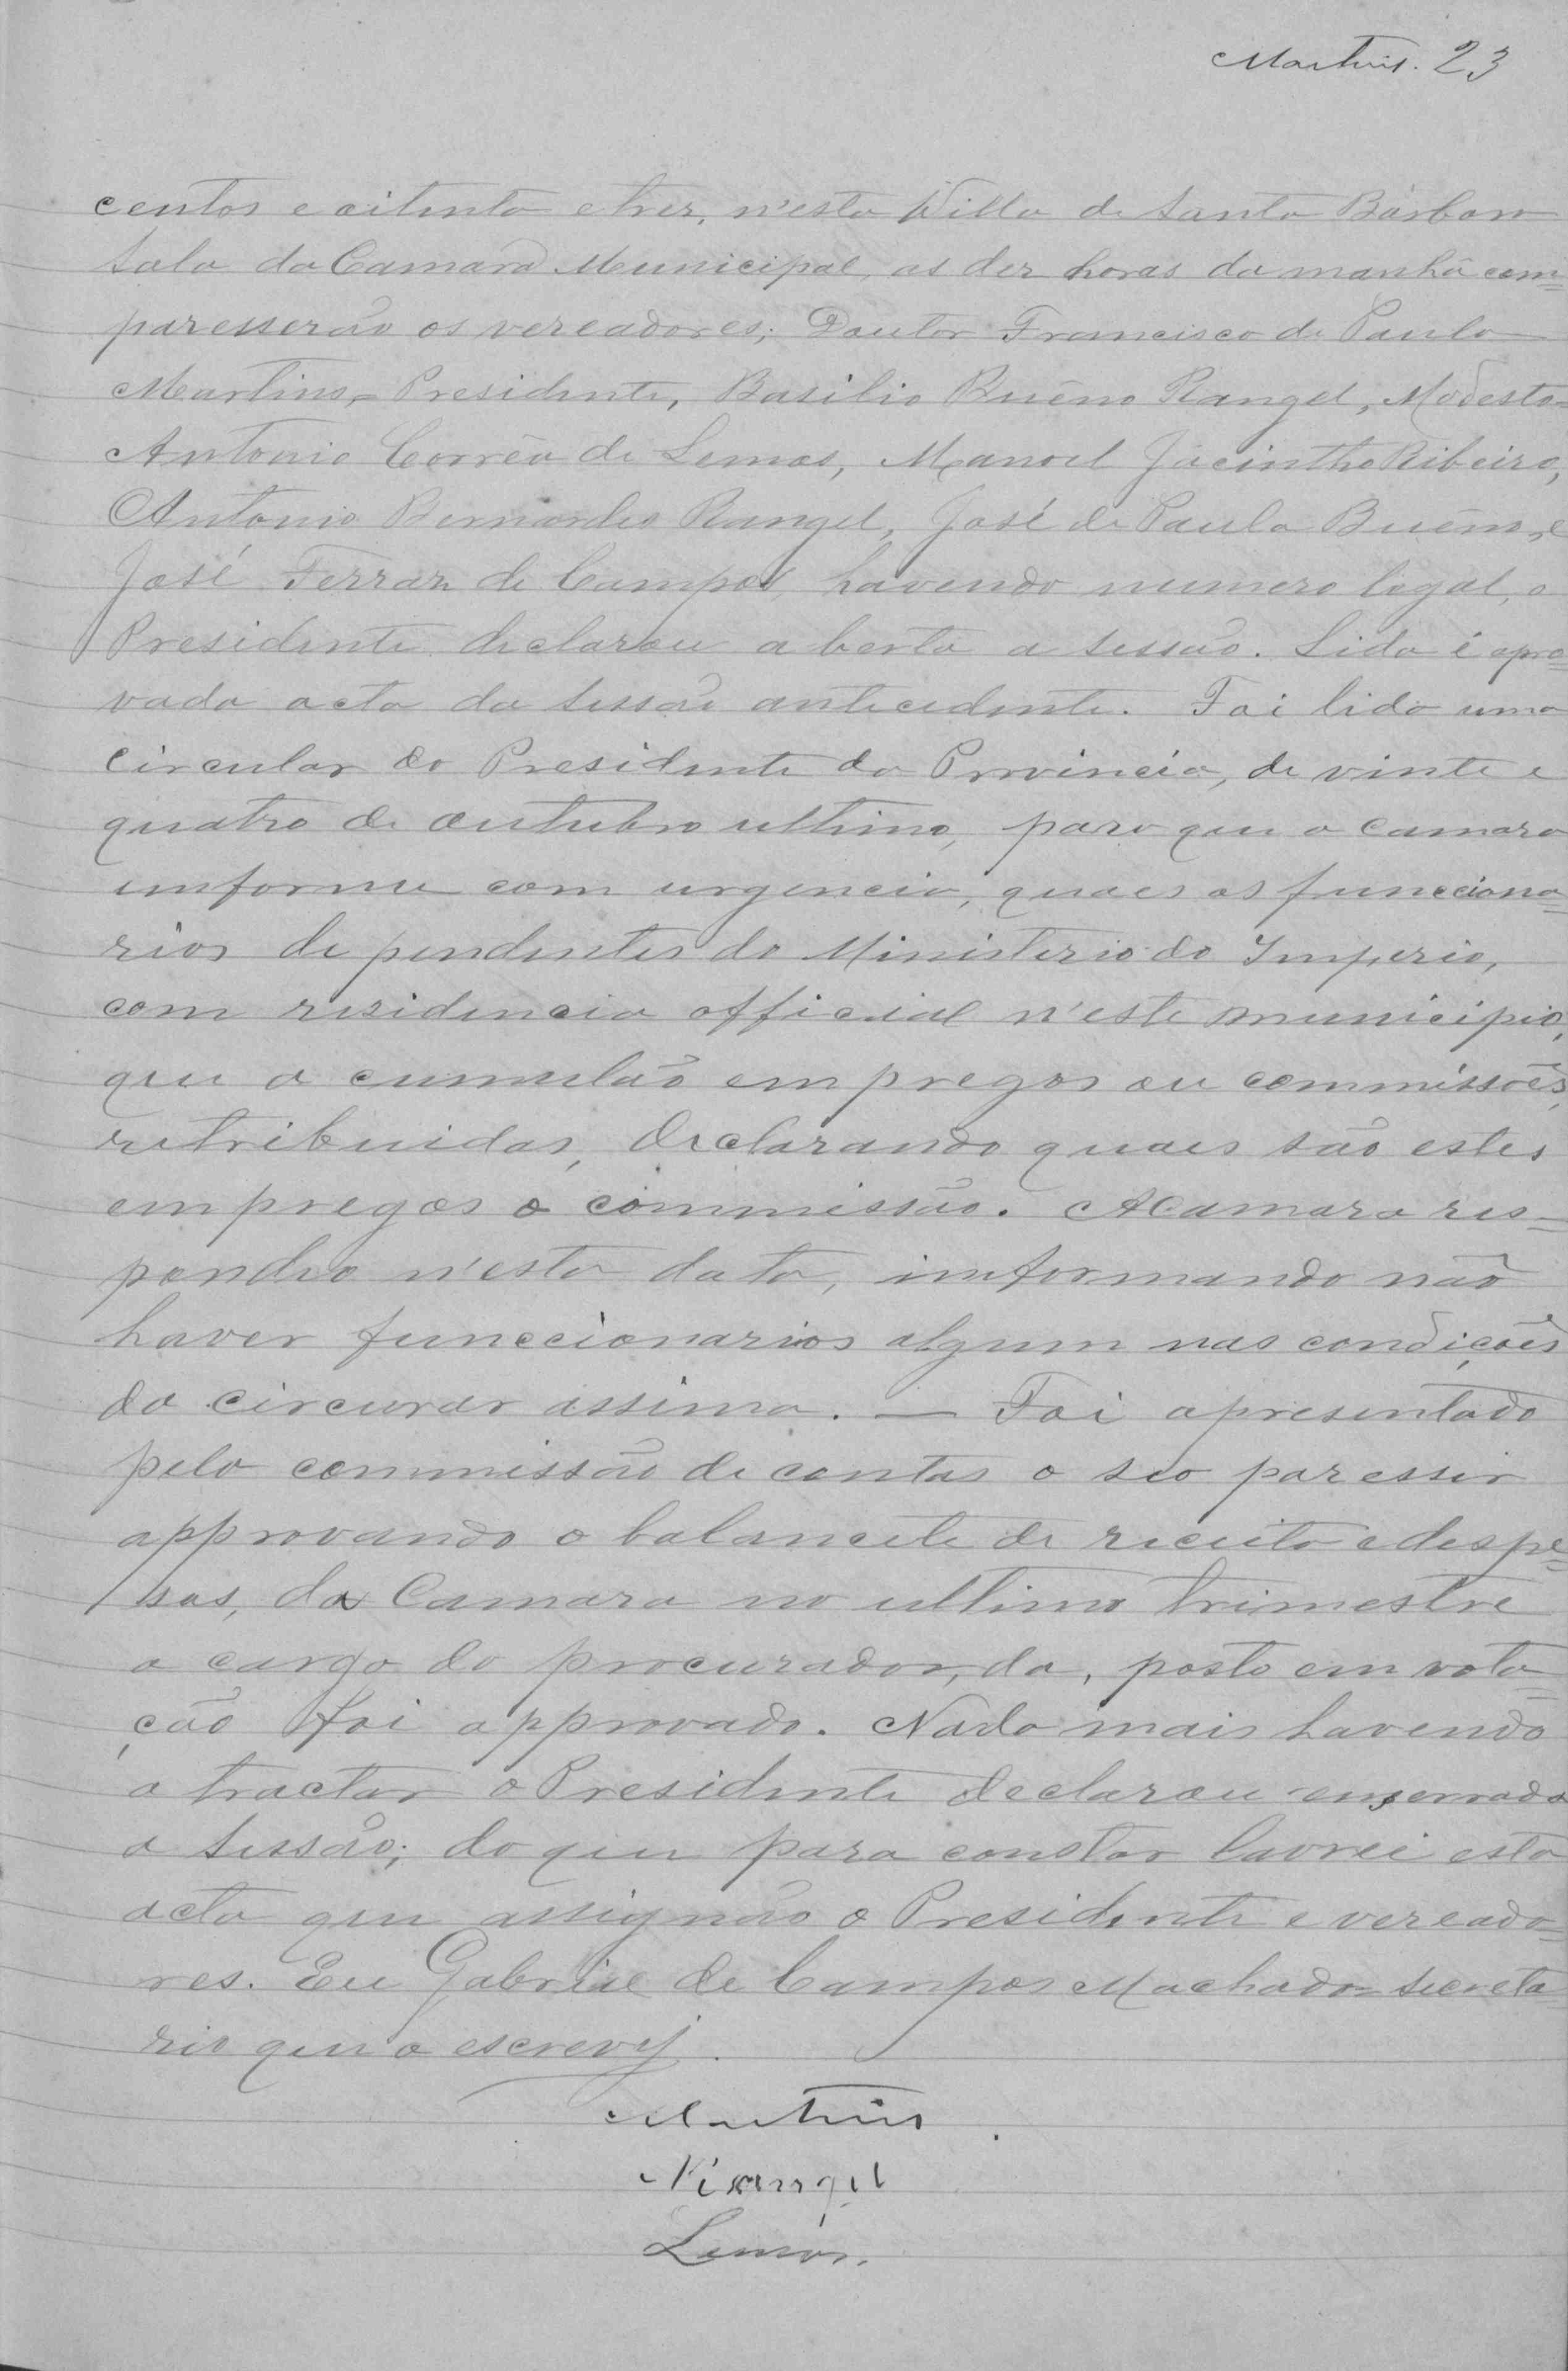 Martins. 23
centos e oitenta e trez, n'esta Villa de Santa Bárbara
sala da Camara Municipal, as dez horas da manhã com=
paresserão os vereadores; Doutor Francisco de Paula
Martins,= Presidente, Basilio Buêno Rangel, Modesto=
Antonio Corrêa de Lemos, Manoel Jacintho Ribeiro,
Antonio Bernardes Rangel, José de Paula Buêno, e
José Ferraz de Campos, havendo numero legal, o
Presidente declarou a berta a sessão. Lida é apro=
vada acta da sessão antecedente. Foi lida uma
circular do Presidente da Provincia, de vinte e
quatro de outubro ultimo, para que a camara
imforme com urgencia, quaes os funcciona=
rios de pendentes do Ministerio do Imperio,
com residencia official n'este municipio,
que a cumulão em pregos ou commissões,
retribuidas, declarando quaes são estes
em pregos o commissão. A Camara res=
pondeo n'esta data, imformando não
haver funccionarios algum nas condições
da circurar assima. — Foi apresentado
pela commissão de contas o seo paresser
approvando o balancete de receita e despe=
sas, da Camara no ultimo trimestre
a cargo do procurador, da, posto em vota=
ção foi approvado. Nada mais havendo
a tractar o Presidente declarou enserrada
a sessão; do que para constar lavrei esta
acta que assignão o Presidente e vereado=
res. Eu Gabriel de Campos Machado= secreta=
rio que o escrevij.
Martins.
Rangel
Lemos.